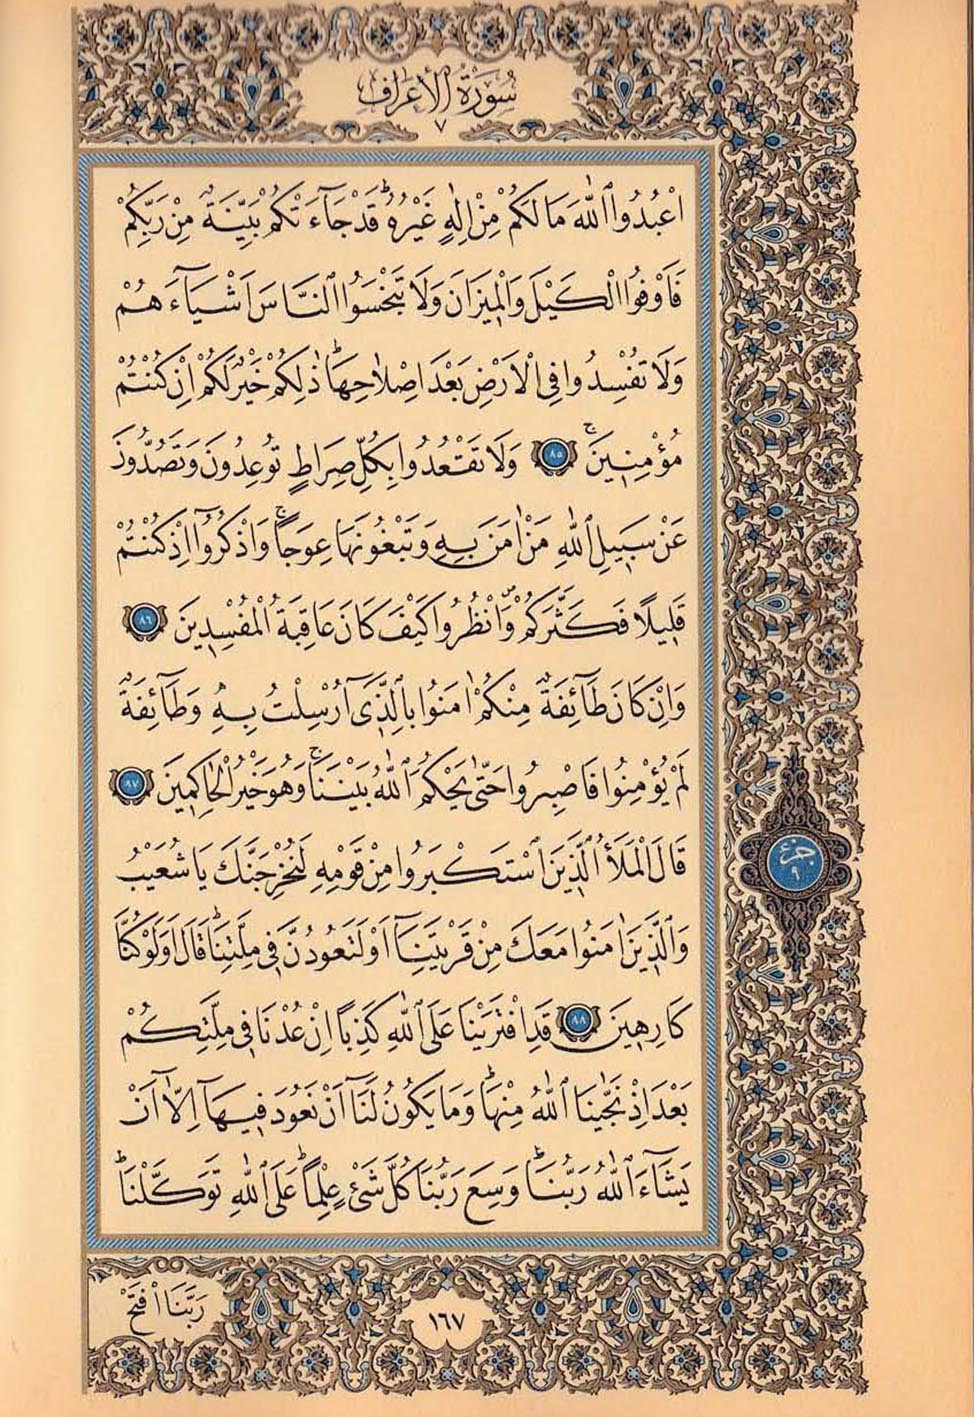 سُورَةُ الْأَعْرَافِ
٧
اُعْبُدُوا اللّٰهَ مَا لَكُمْ مِنْ اِلٰهٍ غَيْرُهُۜ قَدْ جَٓاءَتْكُمْ بَيِّنَةٌ مِنْ رَبِّكُمْ
فَاَوْفُوا الْكَيْلَ وَالْمِيزَانَ وَلَا تَبْخَسُوا النَّاسَ اَشْيَٓاءَهُمْ
وَلَا تُفْسِدُوا فِي الْاَرْضِ بَعْدَ اِصْلَاحِهَاۜ ذٰلِكُمْ خَيْرٌ لَكُمْ اِنْ كُنْتُمْ
مُؤْمِنِينَۚ ﴿٨٥﴾ وَلَا تَقْعُدُوا بِكُلِّ صِرَاطٍ تُوعِدُونَ وَتَصُدُّونَ
عَنْ سَبِيلِ اللّٰهِ مَنْ اٰمَنَ بِهِ وَتَبْغُونَهَا عِوَجاًۚ وَاذْكُرُٓوا اِذْ كُنْتُمْ
قَلِيلًا فَكَثَّرَكُمْۖ وَانْظُرُوا كَيْفَ كَانَ عَاقِبَةُ الْمُفْسِدِينَ ﴿٨٦﴾
وَاِنْ كَانَ طَٓائِفَةٌ مِنْكُمْ اٰمَنُوا بِالَّذِٓي اُرْسِلْتُ بِهِ وَطَٓائِفَةٌ
لَمْ يُؤْمِنُوا فَاصْبِرُوا حَتّٰى يَحْكُمَ اللّٰهُ بَيْنَنَاۚ وَهُوَ خَيْرُ الْحَاكِمِينَ ﴿٨٧﴾
قَالَ الْمَلَأُ الَّذِينَ اسْتَكْبَرُوا مِنْ قَوْمِهِ لَنُخْرِجَنَّكَ يَا شُعَيْبُ
وَالَّذِينَ اٰمَنُوا مَعَكَ مِنْ قَرْيَتِنَٓا اَوْ لَتَعُودُنَّ فِي مِلَّتِنَاۜ قَالَ اَوَلَوْ كُنَّا
كَارِهِينَ ﴿٨٨﴾ قَدِ افْتَرَيْنَا عَلَى اللّٰهِ كَذِباً اِنْ عُدْنَا فِي مِلَّتِكُمْ
بَعْدَ اِذْ نَجّٰينَا اللّٰهُ مِنْهَاۜ وَمَا يَكُونُ لَنَٓا اَنْ نَعُودَ فِيهَٓا اِلَّٓا اَنْ
يَشَٓاءَ اللّٰهُ رَبُّنَاۜ وَسِعَ رَبُّنَا كُلَّ شَيْءٍ عِلْماًۜ عَلَى اللّٰهِ تَوَكَّلْنَاۜ
جزء
٩
رَبَّنَا افْتَحْ
١٦٧